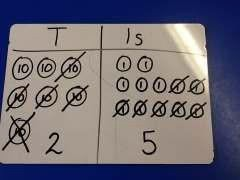 T 1s
10 10 10 1 1
10 10 10 1 1 1 1 1
10 1 1 1 1 1
2 5